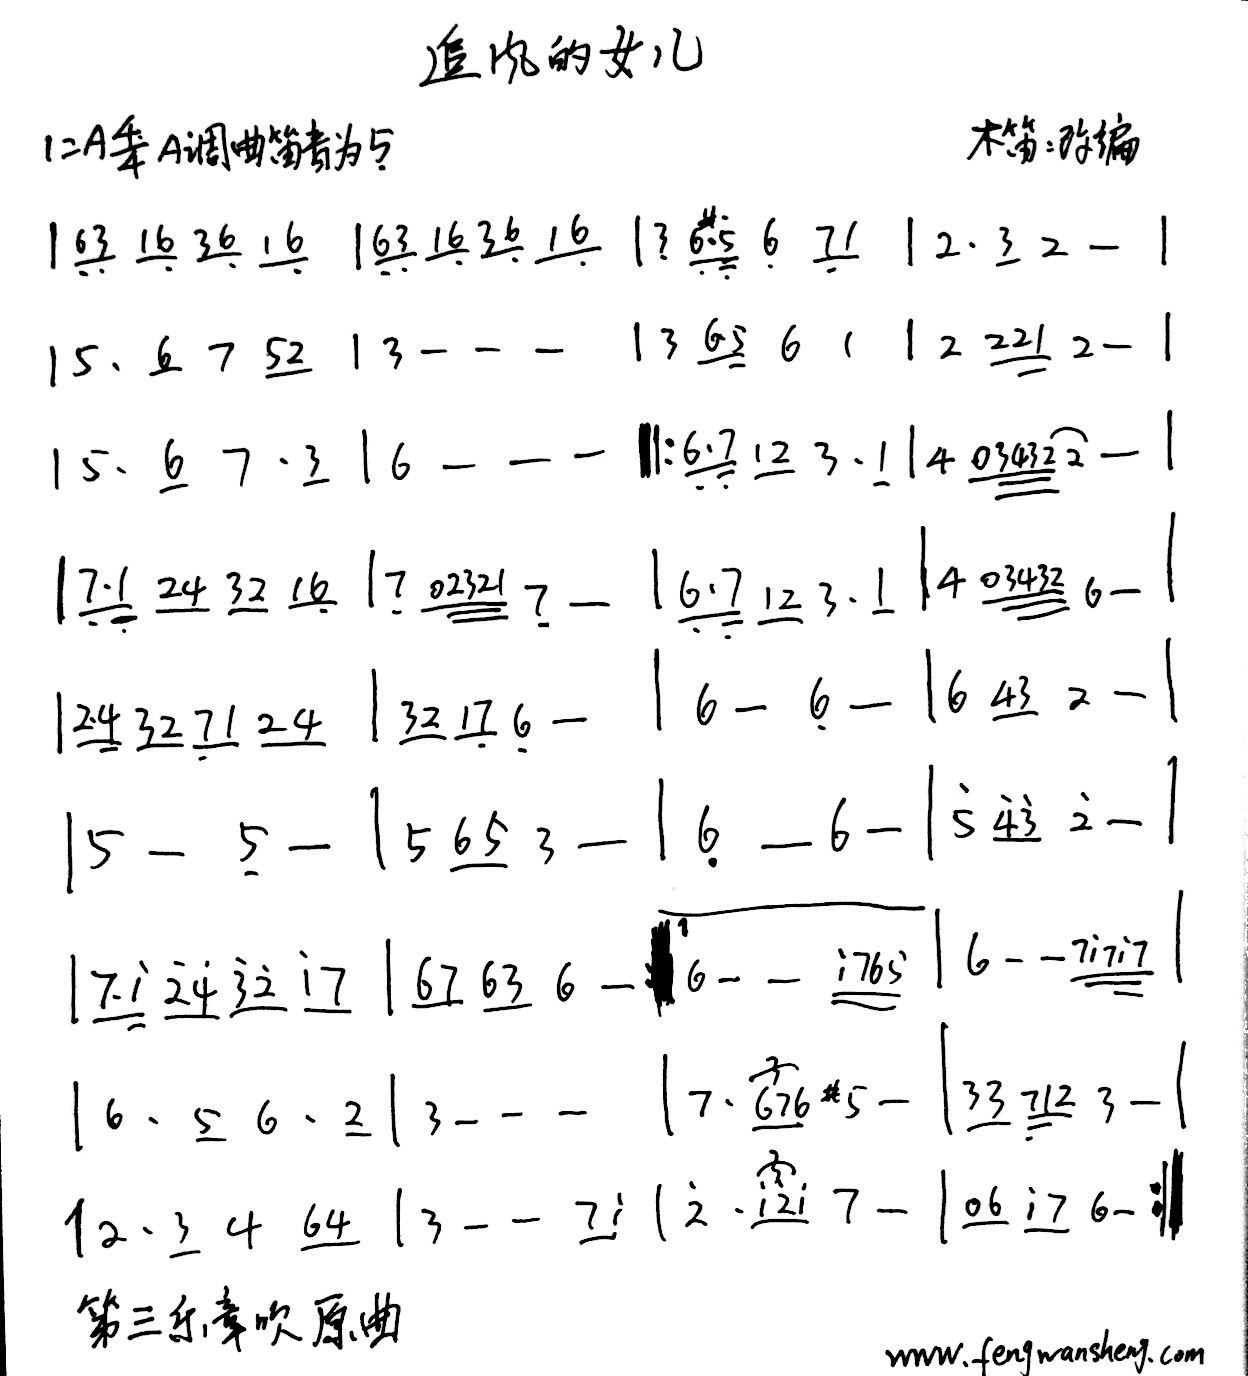 追风的女儿
1=A 4/4 A调曲笛筒音为5
木笛:改编
| 63 16 36 16 | 63 16 36 16 | 3 6·#5 6 71 | 2· 3 2 — |
| 5· 6 7 52 | 3 — — — | 3 65 6 1 | 2 221 2 — |
| 5· 6 7· 3 | 6 — — — ‖: 6·7 12 3· 1 | 4 03432 2 — |
| 7·1 24 32 16 | 7 02321 7 — | 6·7 12 3· 1 | 4 03432 6 — |
| 2·4 32 71 24 | 32 17 6 — | 6 — 6 — | 6 43 2 — |
| 5 — 5 — | 5 65 3 — | 6 — 6 — | 5̇ 4̇3̇ 2̇ — |
| 7·1̇ 2̇4̇ 3̇2̇ 1̇7 | 67 63 6 — :‖ 1 6 — — 1̇765 | 6 — — 71̇71̇7 |
| 6· 5 6· 2 | 3 — — — | 7· 3 676 #5 — | 33 712 3 — |
| 2· 3 4 64 | 3 — — 71̇ | 2̇· 3 1̇2̇1̇ 7 — | 06 1̇7 6 — :‖
第三乐章吹原曲
www.fengwansheng.com